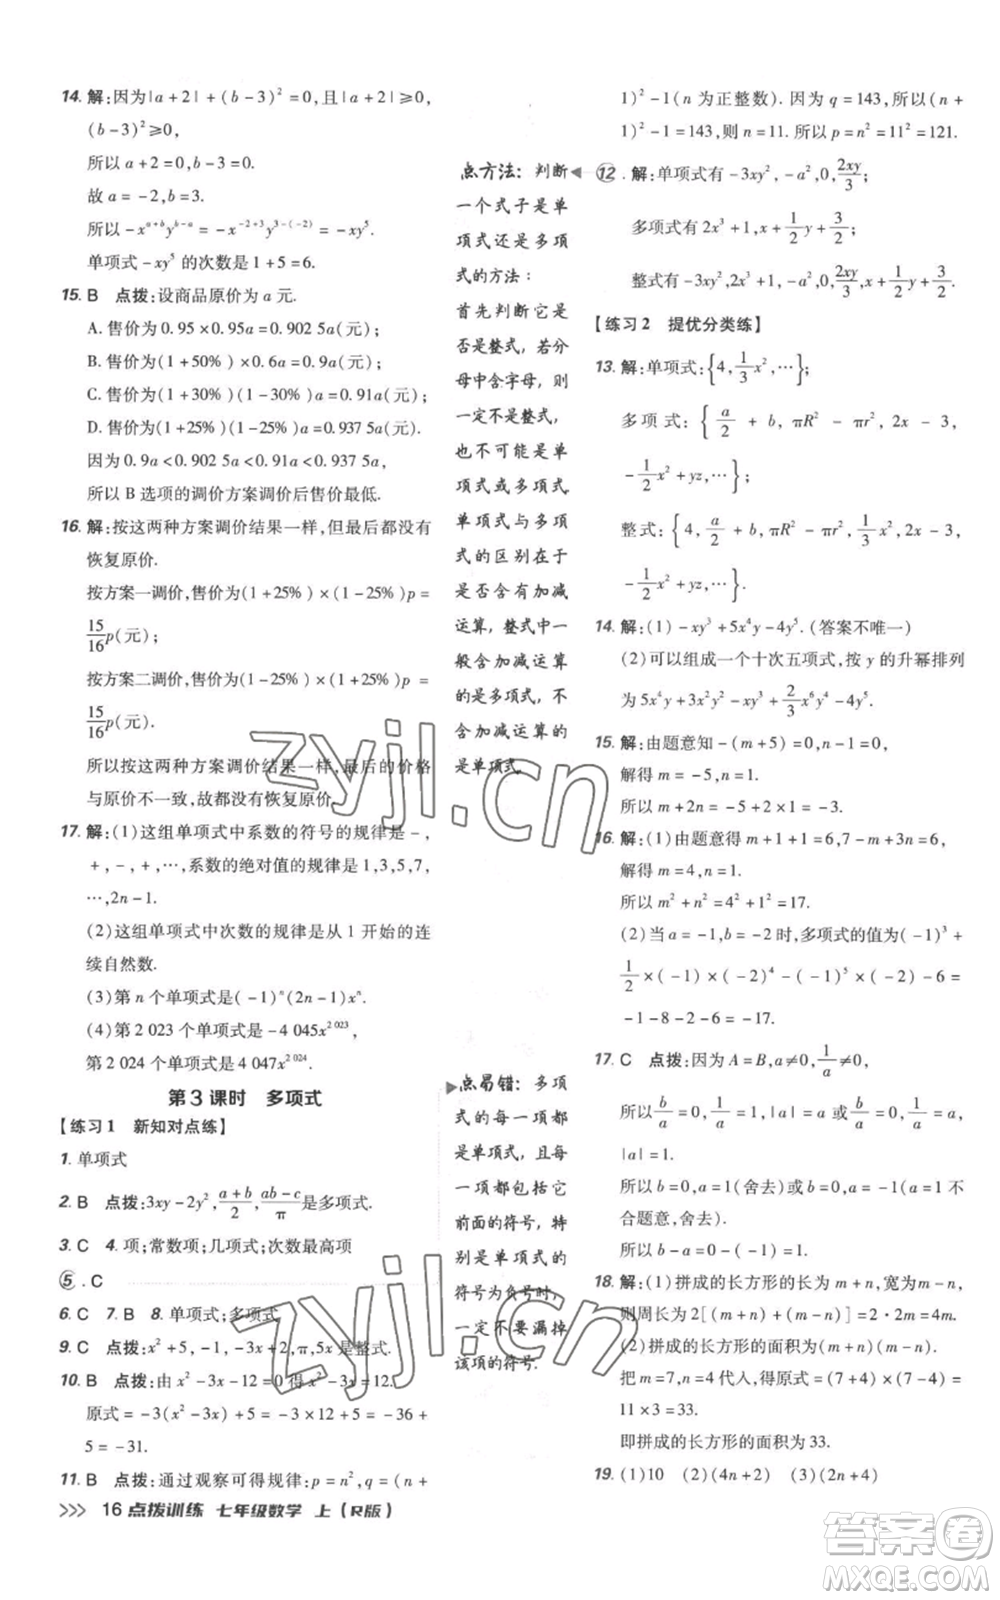 14. 解:因为|a+2|+(b-3)²=0,且|a+2|≥0,
(b-3)²≥0,
所以a+2=0,b-3=0.
故a=-2,b=3.
所以-x^{a+b}y^{b-a}=-x^{-2+3}y^{3-(-2)}=-xy⁵.
单项式-xy⁵的次数是1+5=6.
15. B 点拨:设商品原价为a元.
A. 售价为0.95×0.95a=0.902 5a(元);
B. 售价为(1+50%)×0.6a=0.9a(元);
C. 售价为(1+30%)(1-30%)a=0.91a(元);
D. 售价为(1+25%)(1-25%)a=0.937 5a(元).
因为0.9a<0.902 5a<0.91a<0.937 5a,
所以B选项的调价方案调价后售价最低.
16. 解:按这两种方案调价结果一样,但最后都没有
恢复原价.
按方案一调价,售价为(1+25%)×(1-25%)p=
\frac{15}{16}p(元);
按方案二调价,售价为(1-25%)×(1+25%)p=
\frac{15}{16}p(元).
所以按这两种方案调价结果一样,最后的价格
与原价不一致,故都没有恢复原价.
17. 解:(1)这组单项式中系数的符号的规律是-,
+,-,+,…,系数的绝对值的规律是1,3,5,7,
…,2n-1.
(2)这组单项式中次数的规律是从1开始的连
续自然数.
(3)第n个单项式是(-1)ⁿ(2n-1)xⁿ.
(4)第2 023个单项式是-4 045x^{2 023},
第2 024个单项式是4 047x^{2 024}.
第3课时 多项式
【练习1 新知对点练】
1. 单项式
2. B 点拨:3xy-2y²,\frac{a+b}{2},\frac{ab-c}{π}是多项式.
3. C 4. 项;常数项;几项式;次数最高项
⑤. C
6. C 7. B 8. 单项式;多项式
9. C 点拨:x²+5,-1,-3x+2,π,5x是整式.
10. B 点拨:由x²-3x-12=0得x²-3x=12.
原式=-3(x²-3x)+5=-3×12+5=-36+
5=-31.
11. B 点拨:通过观察可得规律:p=n²,q=(n+
>>> 16 点拨训练 七年级数学 上(R版)
点方法:判断
一个式子是单
项式还是多项
式的方法:
首先判断它是
否是整式,若分
母中含字母,则
一定不是整式,
也不可能是单
项式或多项式.
单项式与多项
式的区别在于
是否含有加减
运算,整式中一
般含加减运算
的是多项式,不
含加减运算的
是单项式.
点易错:多项
式的每一项都
是单项式,且每
一项都包括它
前面的符号,特
别是单项式的
符号为负号时,
一定不要漏掉
该项的符号.
1)²-1(n为正整数).因为q=143,所以(n+
1)²-1=143,则n=11.所以p=n²=11²=121.
⑫. 解:单项式有-3xy²,-a²,0,\frac{2xy}{3};
多项式有2x³+1,x+\frac{1}{2}y+\frac{3}{2};
整式有-3xy²,2x³+1,-a²,0,\frac{2xy}{3},x+\frac{1}{2}y+\frac{3}{2}.
【练习2 提优分类练】
13. 解:单项式:{4,\frac{1}{3}x²,…};
多项式:{\frac{a}{2}+b,πR²-πr²,2x-3,
-\frac{1}{2}x²+yz,…};
整式:{4,\frac{a}{2}+b,πR²-πr²,\frac{1}{3}x²,2x-3,
-\frac{1}{2}x²+yz,…}.
14. 解:(1)-xy³+5x⁴y-4y⁵.(答案不唯一)
(2)可以组成一个十次五项式,按y的升幂排列
为5x⁴y+3xy²-xy³+\frac{2}{3}x⁶y⁴-4y⁵.
15. 解:由题意知-(m+5)=0,n-1=0,
解得m=-5,n=1.
所以m+2n=-5+2×1=-3.
16. 解:(1)由题意得m+1+1=6,7-m+3n=6,
解得m=4,n=1.
所以m²+n²=4²+1²=17.
(2)当a=-1,b=-2时,多项式的值为(-1)³+
\frac{1}{2}×(-1)×(-2)⁴-(-1)⁵×(-2)-6=
-1-8-2-6=-17.
17. C 点拨:因为A=B,a≠0,\frac{1}{a}≠0,
所以\frac{b}{a}=0,\frac{1}{a}=1,|a|=1或\frac{b}{a}=0,\frac{1}{a}=a,
|a|=1.
所以b=0,a=1(舍去)或b=0,a=-1(a=1不
合题意,舍去).
所以b-a=0-(-1)=1.
18. 解:(1)拼成的长方形的长为m+n,宽为m-n,
则周长为2[(m+n)+(m-n)]=2·2m=4m.
(2)拼成的长方形的面积为(m+n)(m-n).
把m=7,n=4代入,得(7+4)×(7-4)=
11×3=33.
即拼成的长方形的面积为33.
19. (1)10 (2)(4n+2) (3)(2n+4)
zyjl.cn
zyjl.cn
答案圈
MXQE.COM